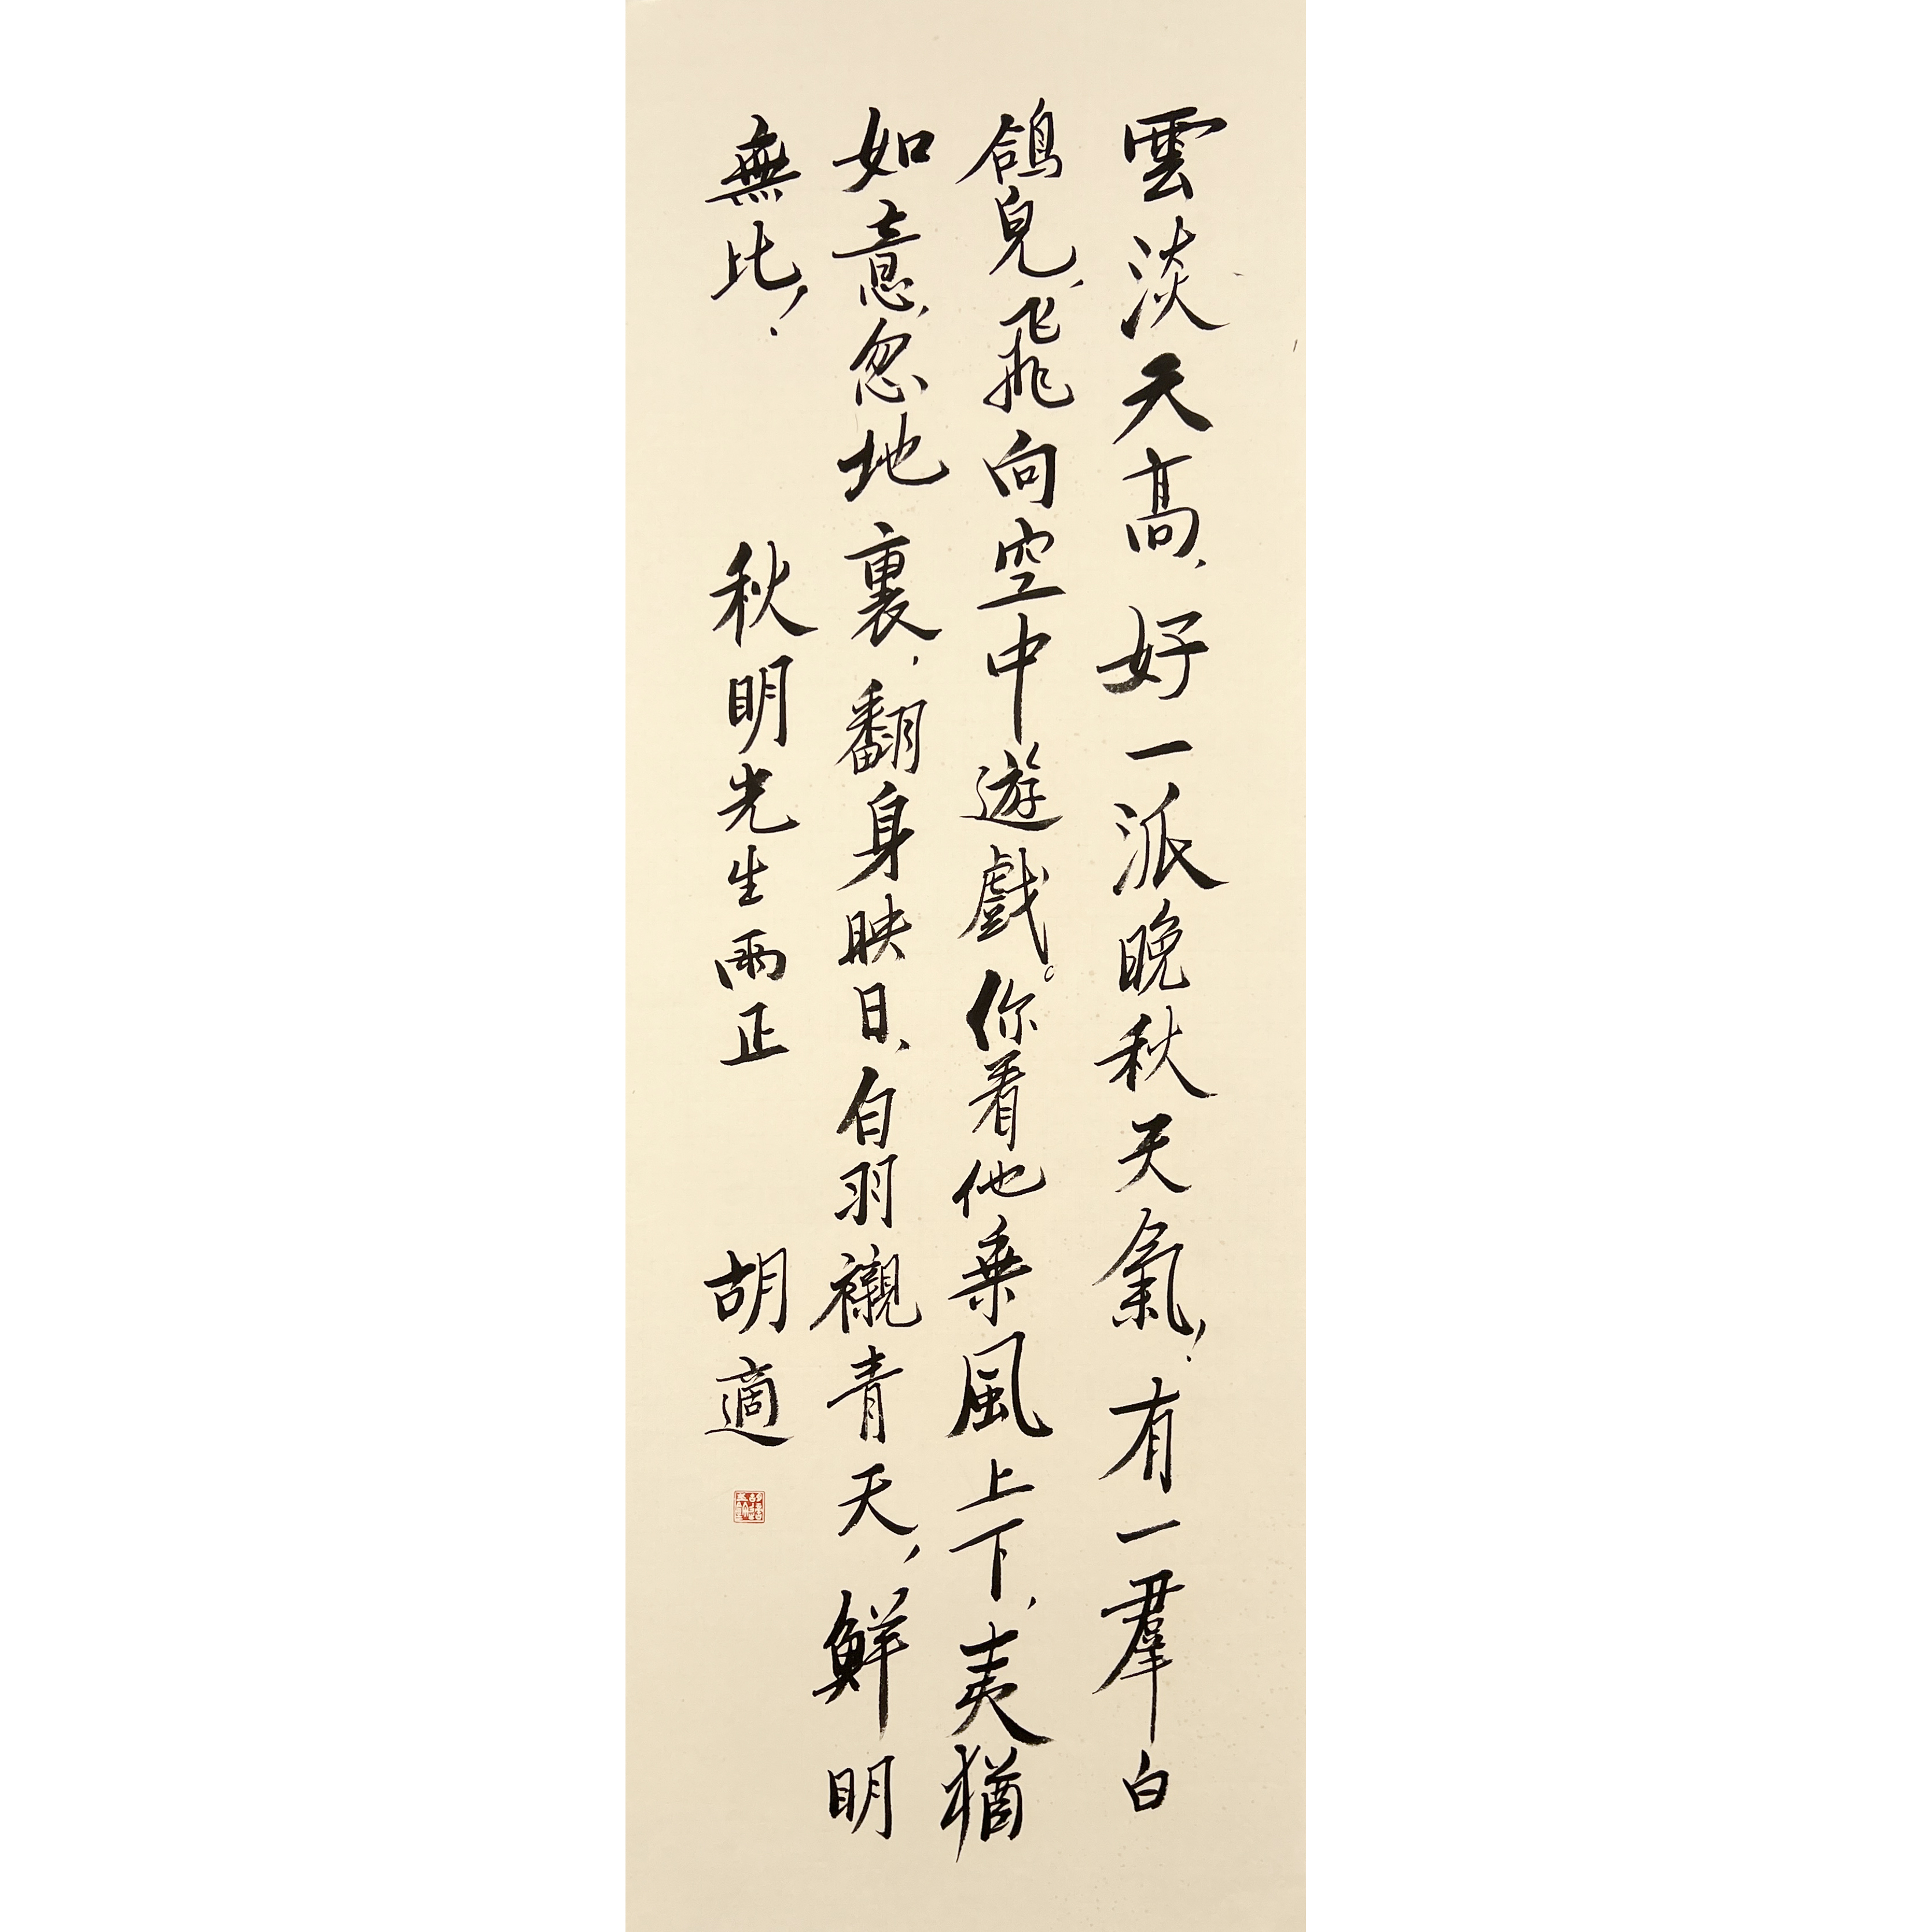 雲淡天高、好一派晚秋天氣！有一羣白
鴿兒、飛向空中遊戲。你看他乘風上下、夷猶
如意、忽地裏，翻身映日、白羽襯青天，鮮明
無比！ 秋明先生兩正 胡適